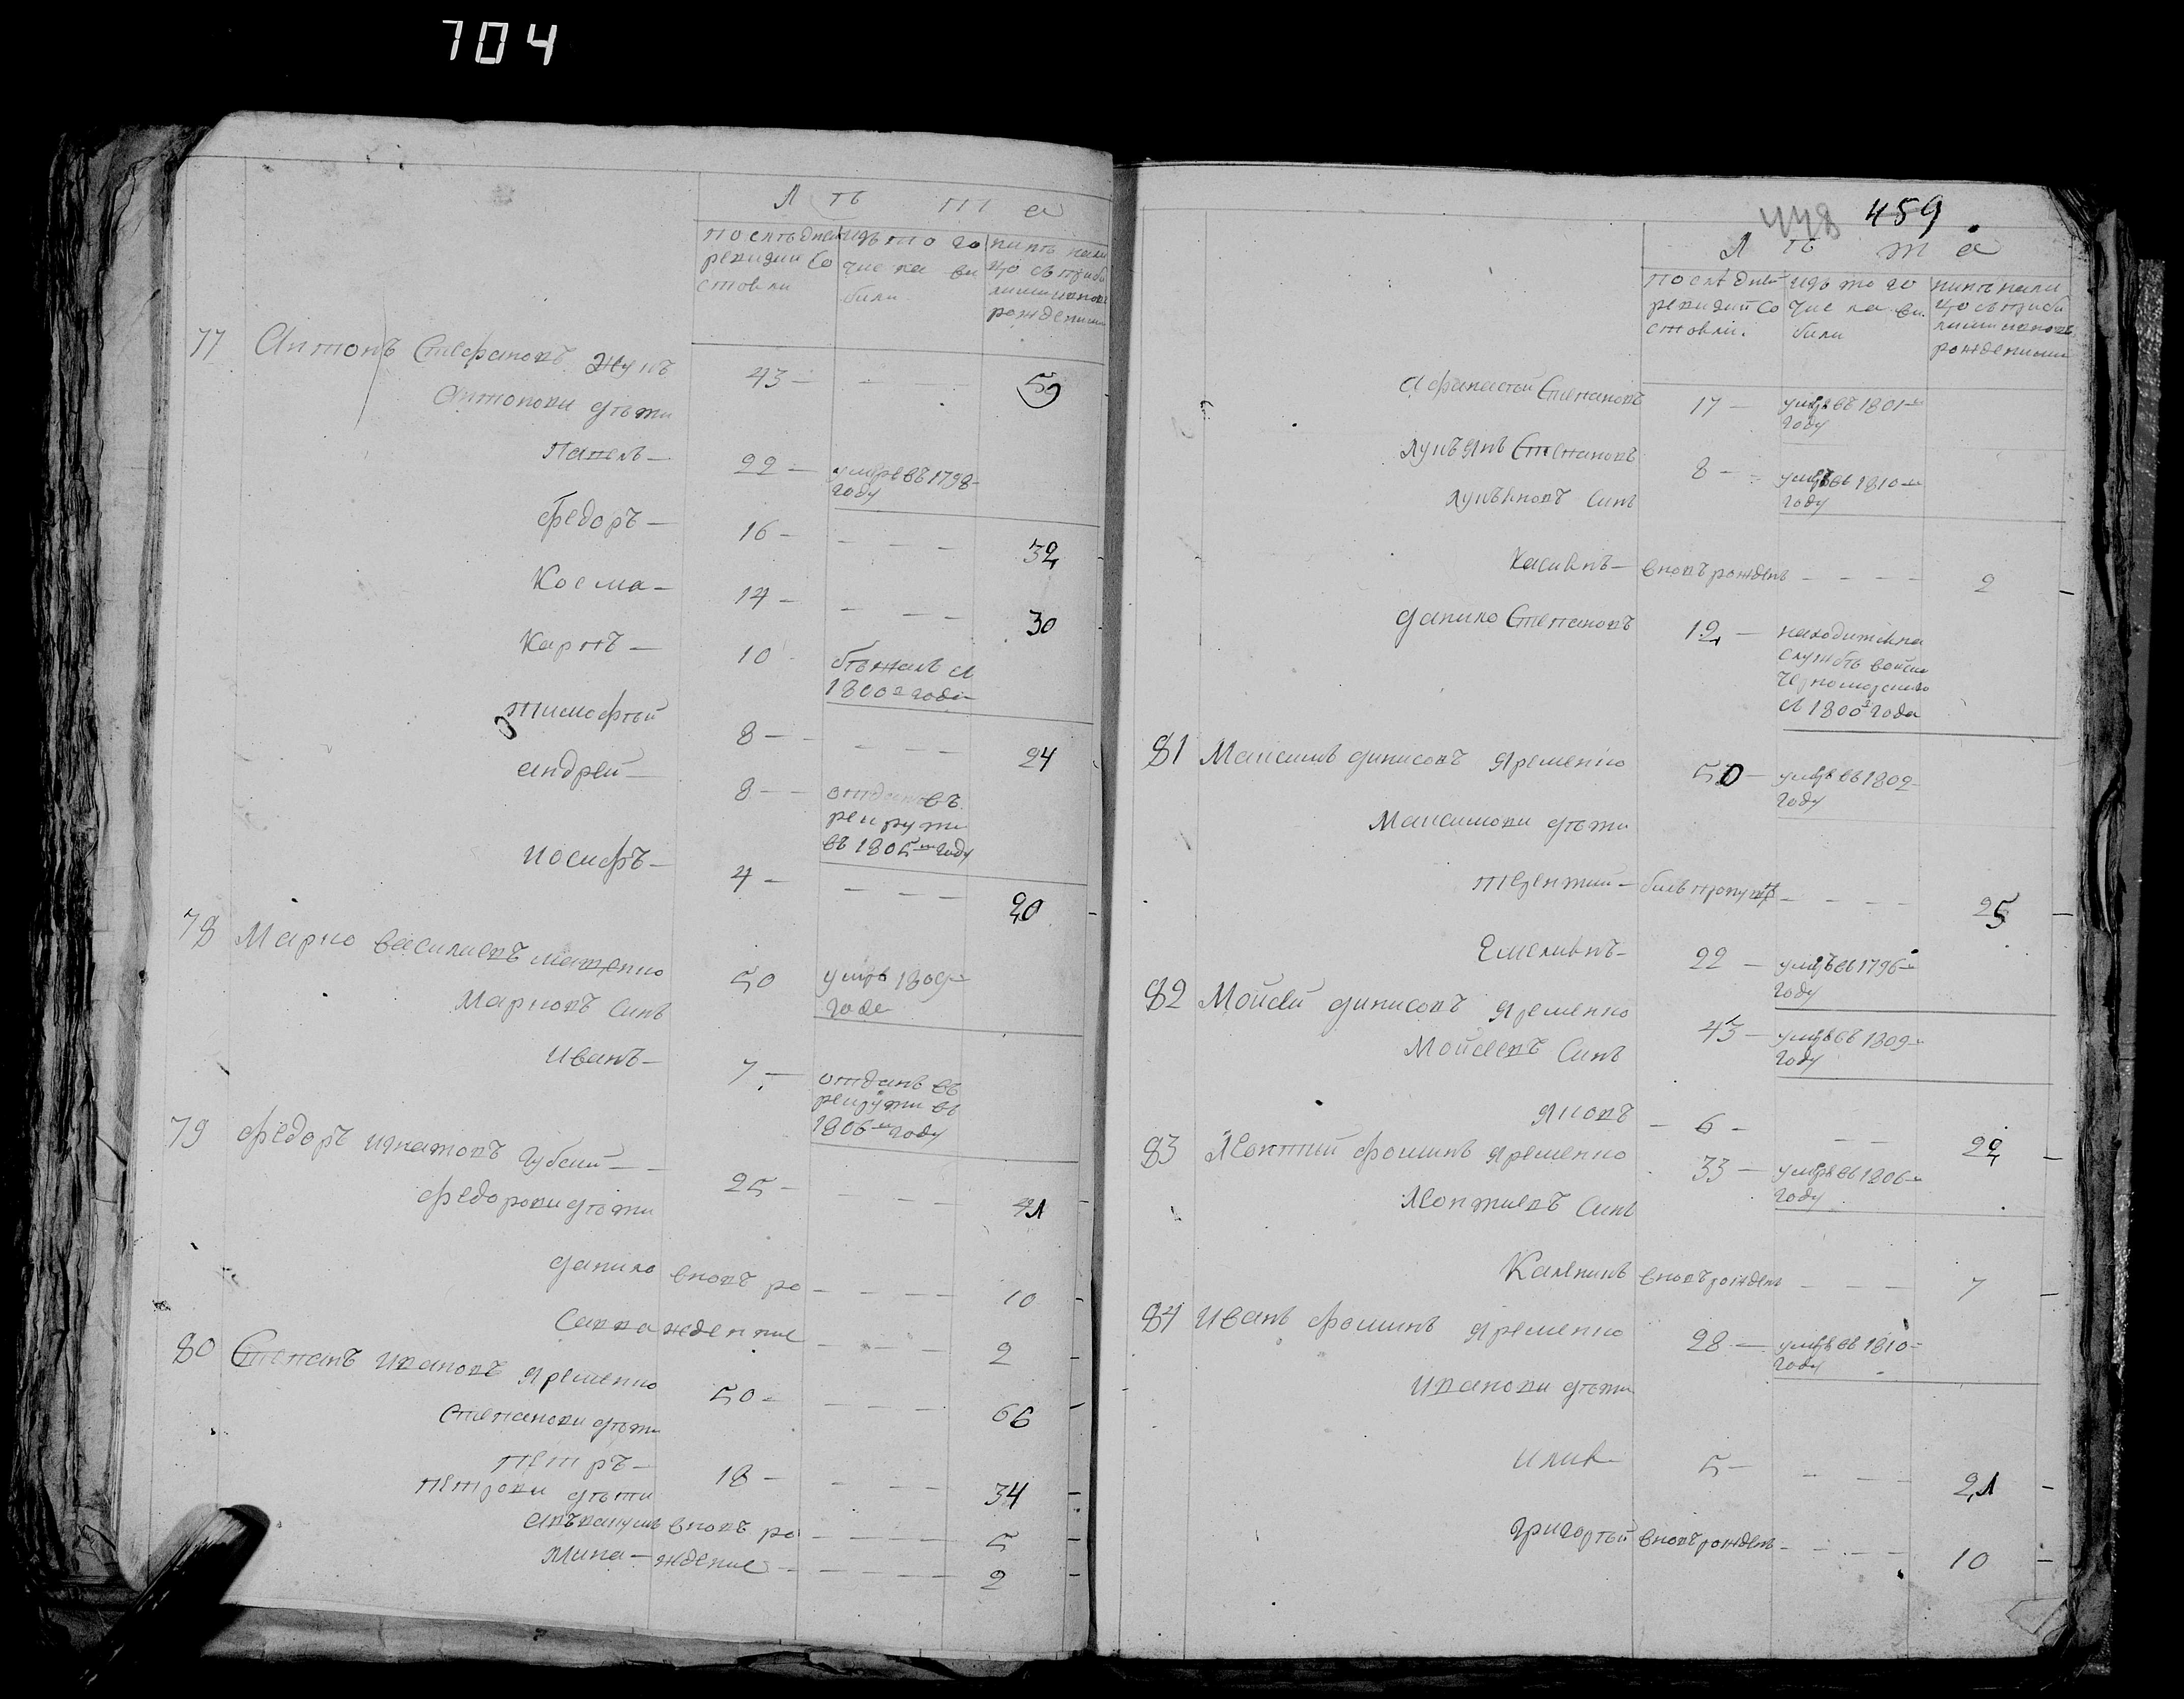 704
Лѣта
по слѣдней ревизии состояли
изъ того числа выбыли
нинѣ налицо съ прибилими и внове рожденними
77 Антонъ Стефановъ Жукъ 43 — — 59
Антонови дѣти
Павелъ — 22 — умре въ 1798 году
Федоръ — 16 — — — — 32
Косма — 14 — — — — 30
Карпъ — 10 бѣжалъ съ 1800го года
Тимофѣй 8 — — — — 24
андрей — 8 — отданъ въ рекрути въ 1805м году
иосифъ — 4 — — — — 20
78 Марко василиевъ 50 умре 1809 года
Марковъ Синъ
иванъ — 7 — отданъ въ рекрути въ 1806м году
79 федоръ игнатовъ губский — 25 — — — — 41
федорови дѣти
данило вновъ ро — — — 10
Савва ждение — — — 2
80 Степанъ ивановъ Яременко 50 — — — — 66
Степанови дѣти
петръ — 18 — — — — 34
петрови дѣти
вновъ ро — — — — 5
Мина — ждение — — — — 2
448 459
Лѣта
по слѣдней ревизий состояли.
изъ того числа выбили
нинѣ налицо съ прибилими и внове рожденними
афанасѣй Степановъ 17 — умре въ 1801м году
лукъянъ Степановъ 8 — умре въ 1810м году
лукъяновъ Синъ
касиянъ — вновъ рожденъ — — — — 2
данило Степановъ 12 — находится на службѣ войска черноморского съ 1800го года
81 Максимъ динисовъ Яременко 50 — умре въ 1802 году
Максимови дѣти
терентий — билъ пропущ — — — — 25
Емелиянъ — 22 — умре въ 1796м году
82 Мойсей динисовъ Яременко 43 — умре въ 1809м году
Мойсеевъ Синъ
Яковъ — 6 — — — 22
83 Леонтий фоминъ Яременко 33 — умре въ 1806м году
Леонтиевъ Синъ
Каленикъ вновъ рожденъ — — — 7
84 иванъ фоминъ Яременко 28 — умре въ 1810 году
иванови дѣти
илия — 5 — — — — 21
григорѣй вновъ рожденъ — — — 10